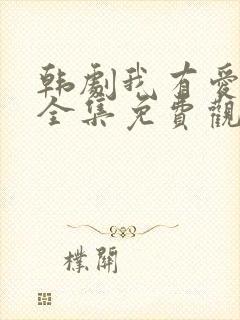 韩劇我有愛
全集免費觀
樸開